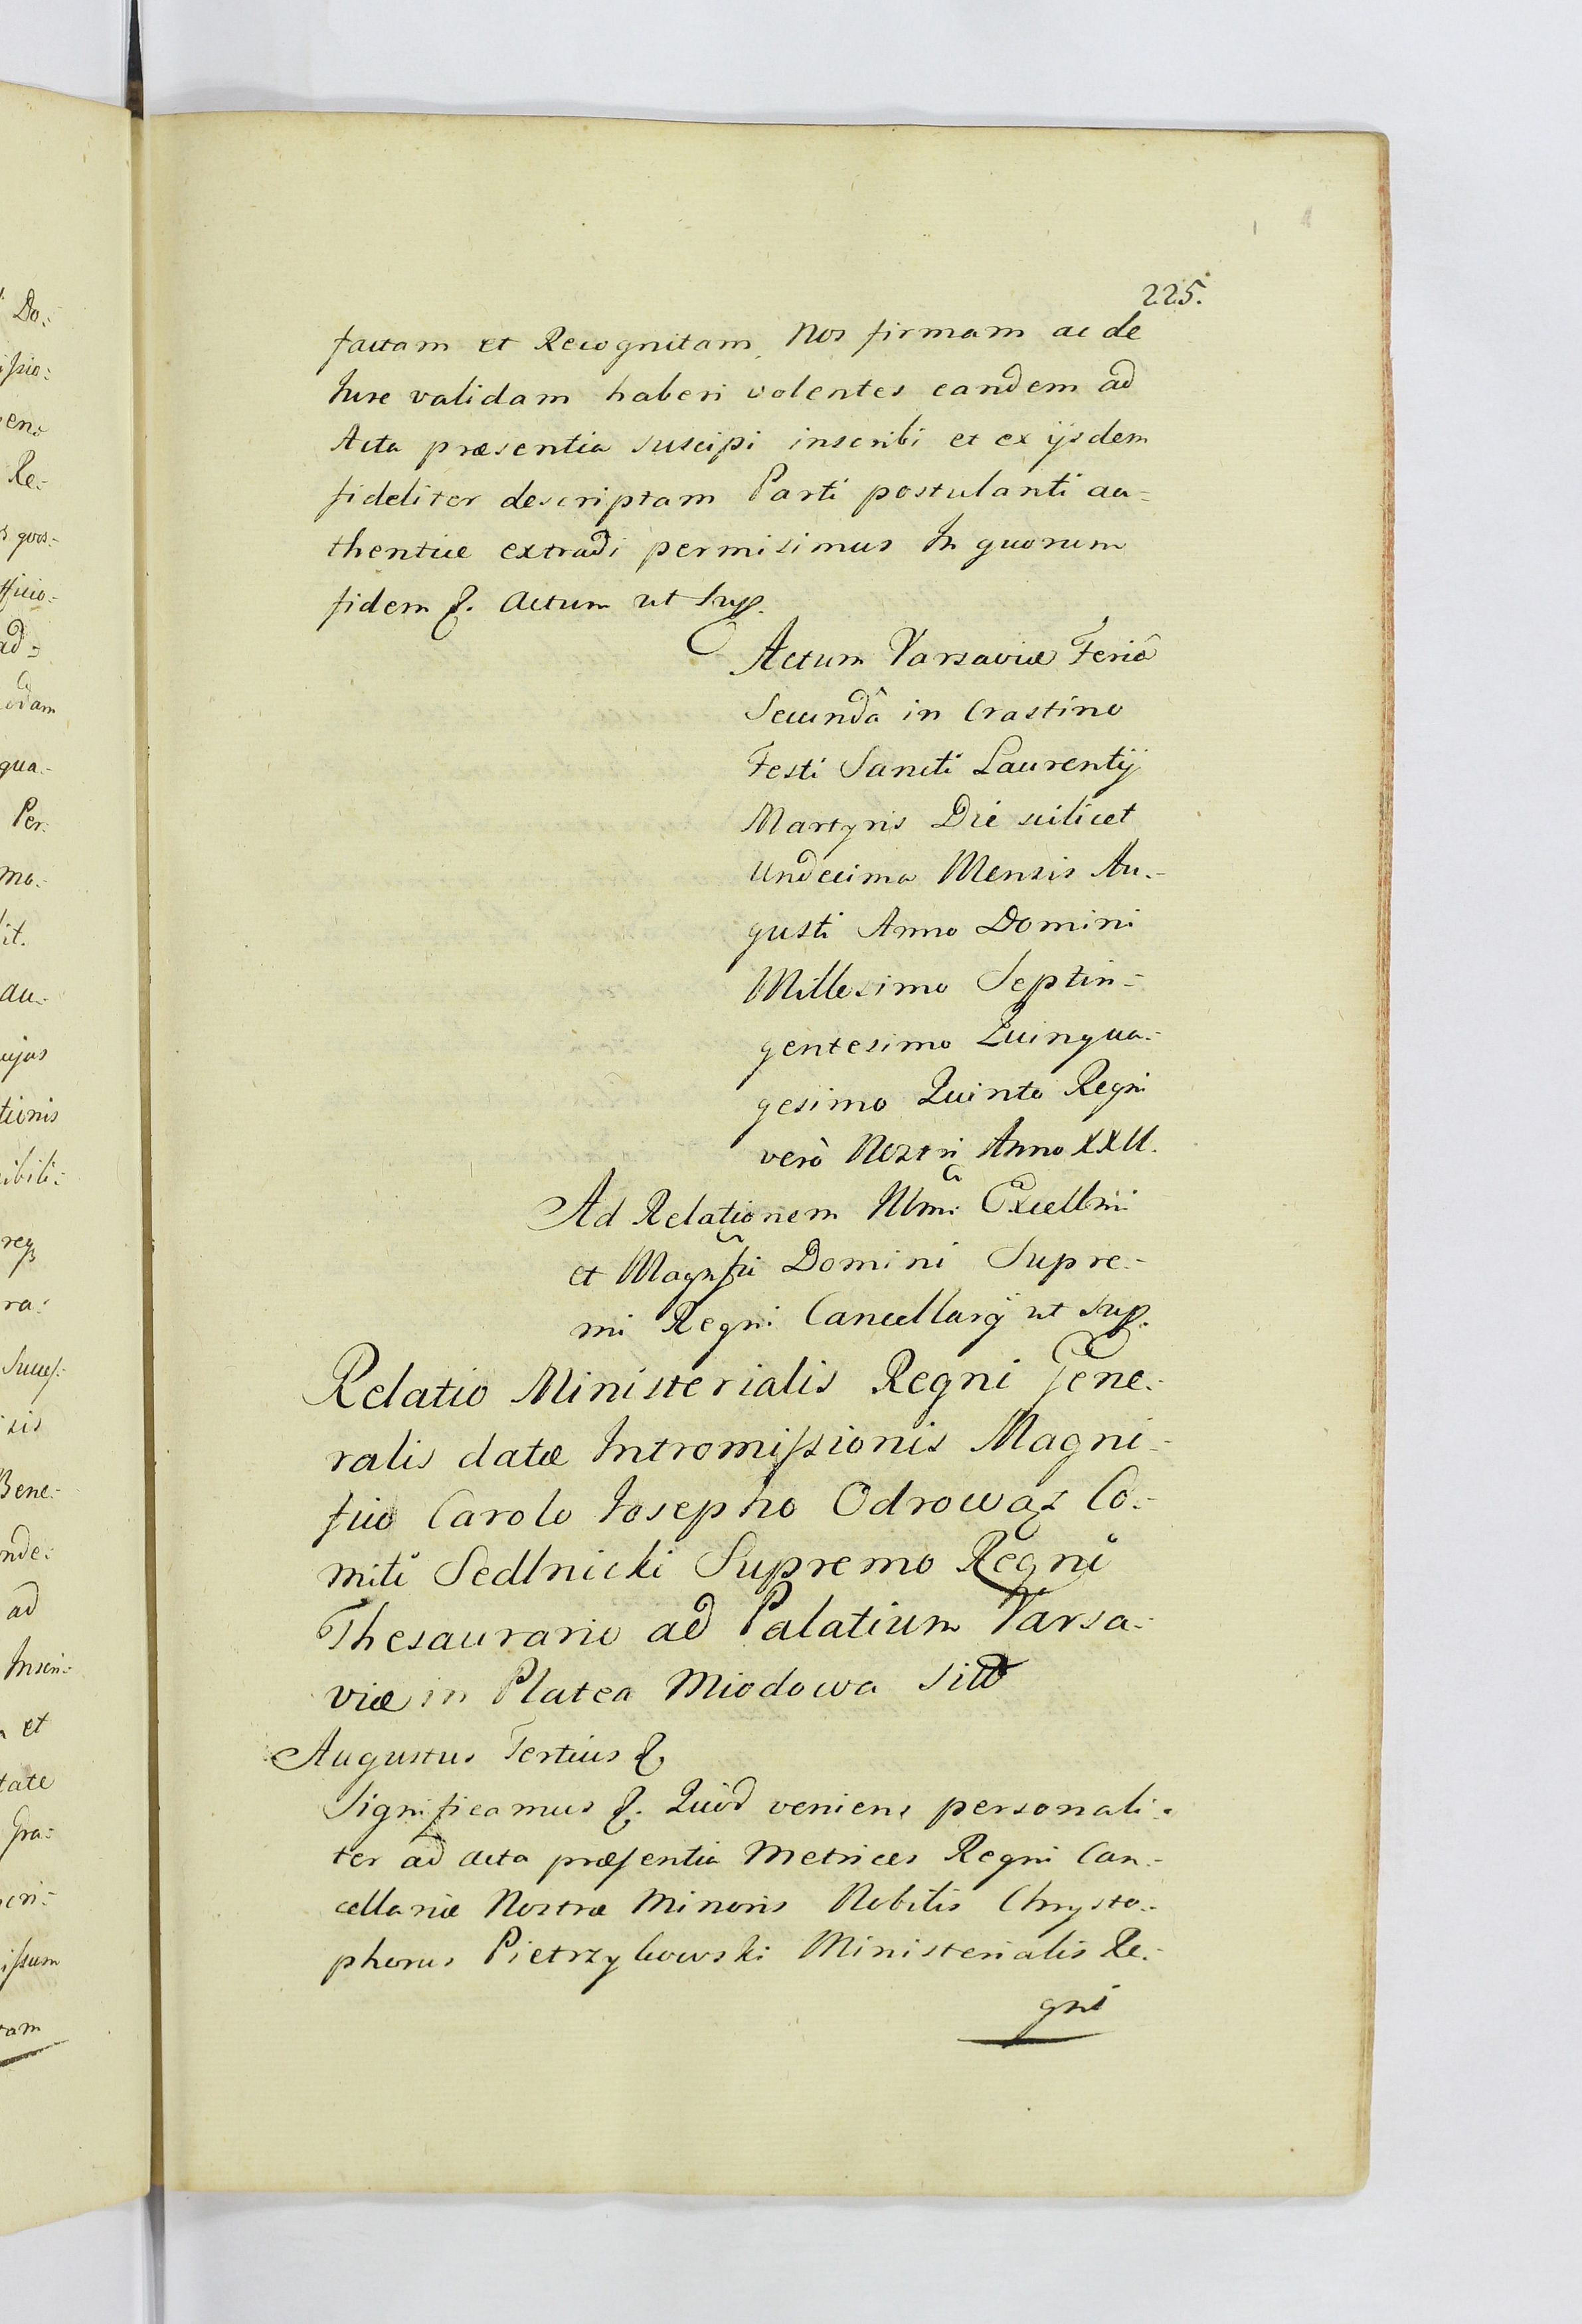 225.
factam et Recognitam, Nos firmam ac de
Jure validam haberi volentes eandem ad
Acta præsentia suscipi inscribi et ex ijsdem
fideliter descriptam Parti postulanti au=
thentice extradi permisimus In quorum
fidem &. Actum ut Sup.
Actum Varsaviæ Feriâ
Secundâ in Crastino
Festi Sancti Laurentij
Martyris Die scilicet
Undecima Mensis Au.-
gusti Anno Domini
Millesimo Septin=
gentesimo Quinqua=
gesimo Quinto Regni
verò Nostri Anno XXII.
Ad Relationem Illmi Excellmi
et Magnfci Domini Supre.-
mi Regni Cancellarij ut Sup.
Relatio Ministerialis Regni Gene.-
ralis datæ Intromissionis Magni=
fico Carolo Josepho Odrowąz Co.-
miti Sedlnicki Supremo Regni
Thesaurario ad Palatium Varsa=
viæ in Platea Miodowa
Augustus Tertius &
Significamus &. Quòd veniens personali=
ter ad acta præsentia Metrices Regni Can.-
cellariæ Nostræ Minoris Nobilis Chrysto.-
phorus Ministerialis Re.-
gni
Do.-
Re.-
ad=
odam
qua.-
Per:
it.
au.-
tionis
ra:
Bene.-
nde:
ad
et
tate
Gra=
tam